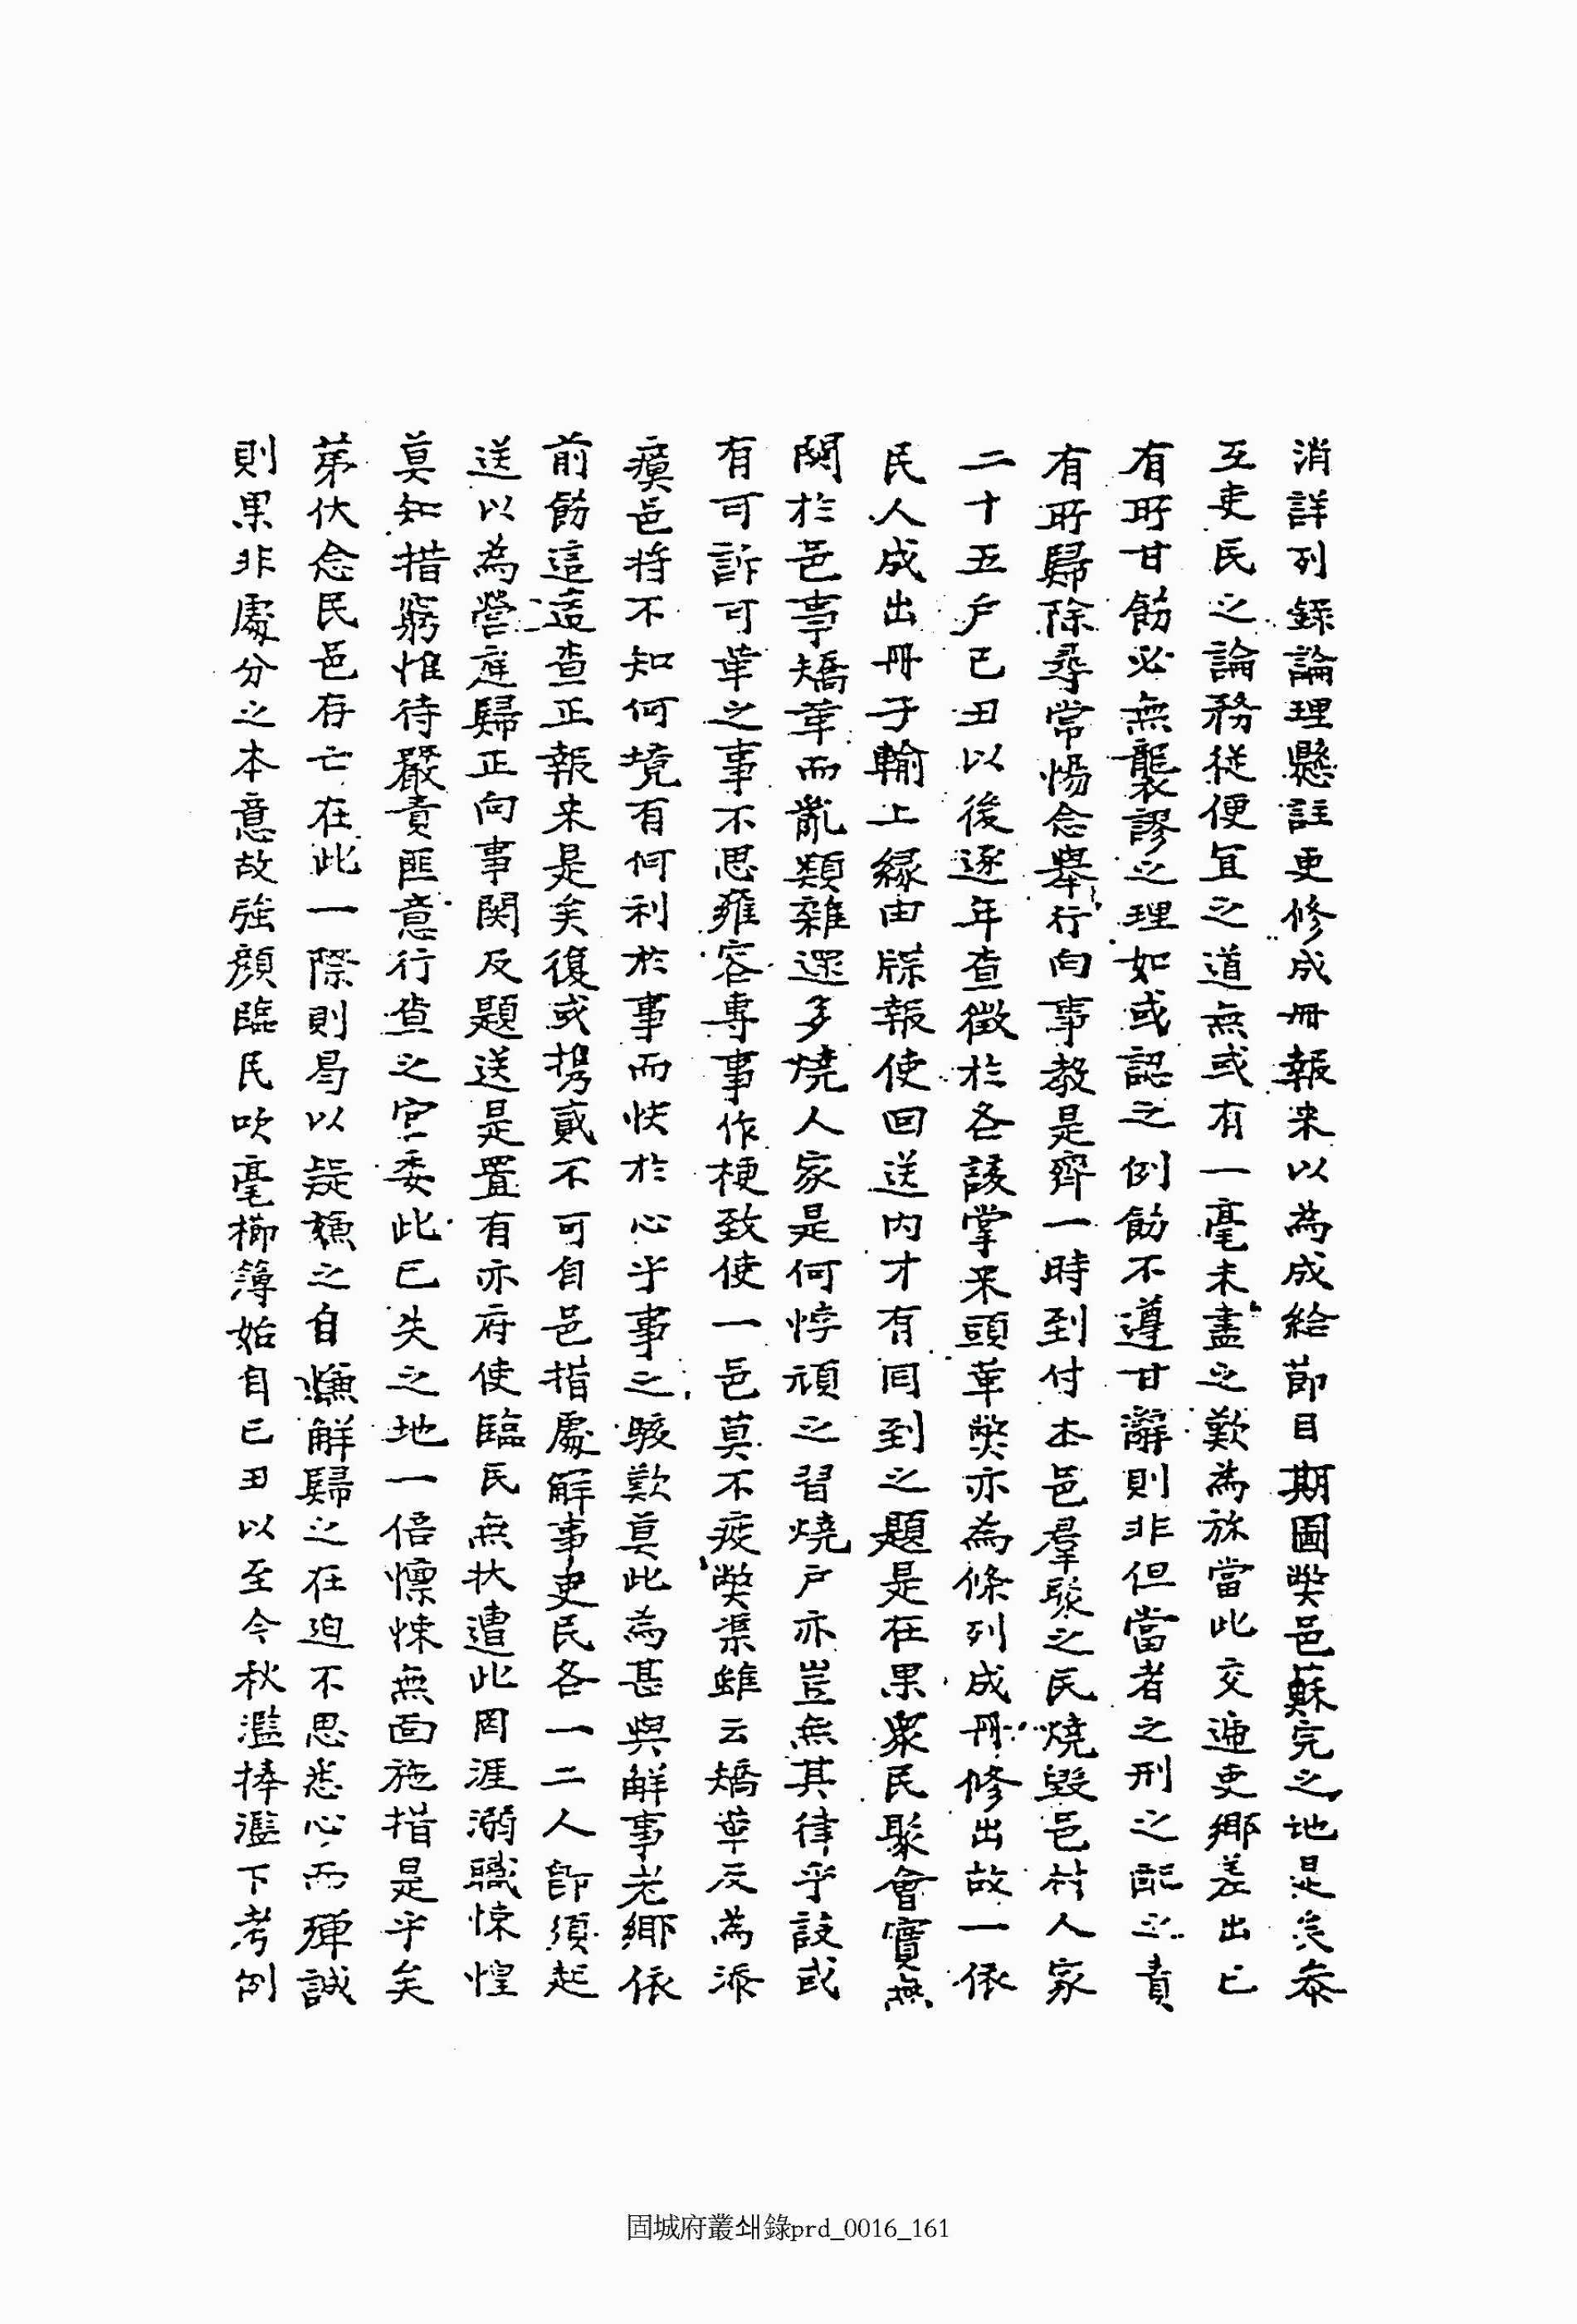 消詳列錄論理懸註更修成冊報来以為成給節目期圖獘邑蘇完之地是矣叅
互吏民之論務從便宜之道無或有一毫未盡之歎為旀當此交遞吏鄕差出已
有所甘飭必無襲謬之理如或認之例飭不遵甘辭則非但當者之刑之配之責
有所歸除尋常惕念舉行向事敎是齊一時到付本邑羣聚之民燒毁邑村人家
二十五户己丑以後逐年查徵於各該掌釆頭革獘亦為條列成冊修出故一依
民人成出冊子輸上緣由牒報使回送內才有同到之題是在果衆民聚會實無
関於邑事矯革而亂類雜還多燒人家是何悖頑之習燒户亦豈無其律乎設或
有可訴可革之事不思雍容專事作梗致使一邑莫不疲獘渠雖云矯革反為添
瘼邑將不知何境有何利於事而快於心乎事之駭歎莫此為甚與解事老鄕依
前飭這這查正報来是矣復或携貳不可自邑指處解事吏民各一二人卽須起
送以為營庭歸正向事関及題送是置有亦府使臨民無狀遭此罔涯溺職悚惶
莫知措躬惟待嚴責匪意行查之官委此已失之地一倍懍悚無面施措是乎矣
苐伏念民邑存亡在此一際則曷以疑難之自慊解歸之在迫不思悉心而殫誠
則果非處分之本意故強顔臨民吹毫櫛簿始自己丑以至今秋濫捧濫下考例